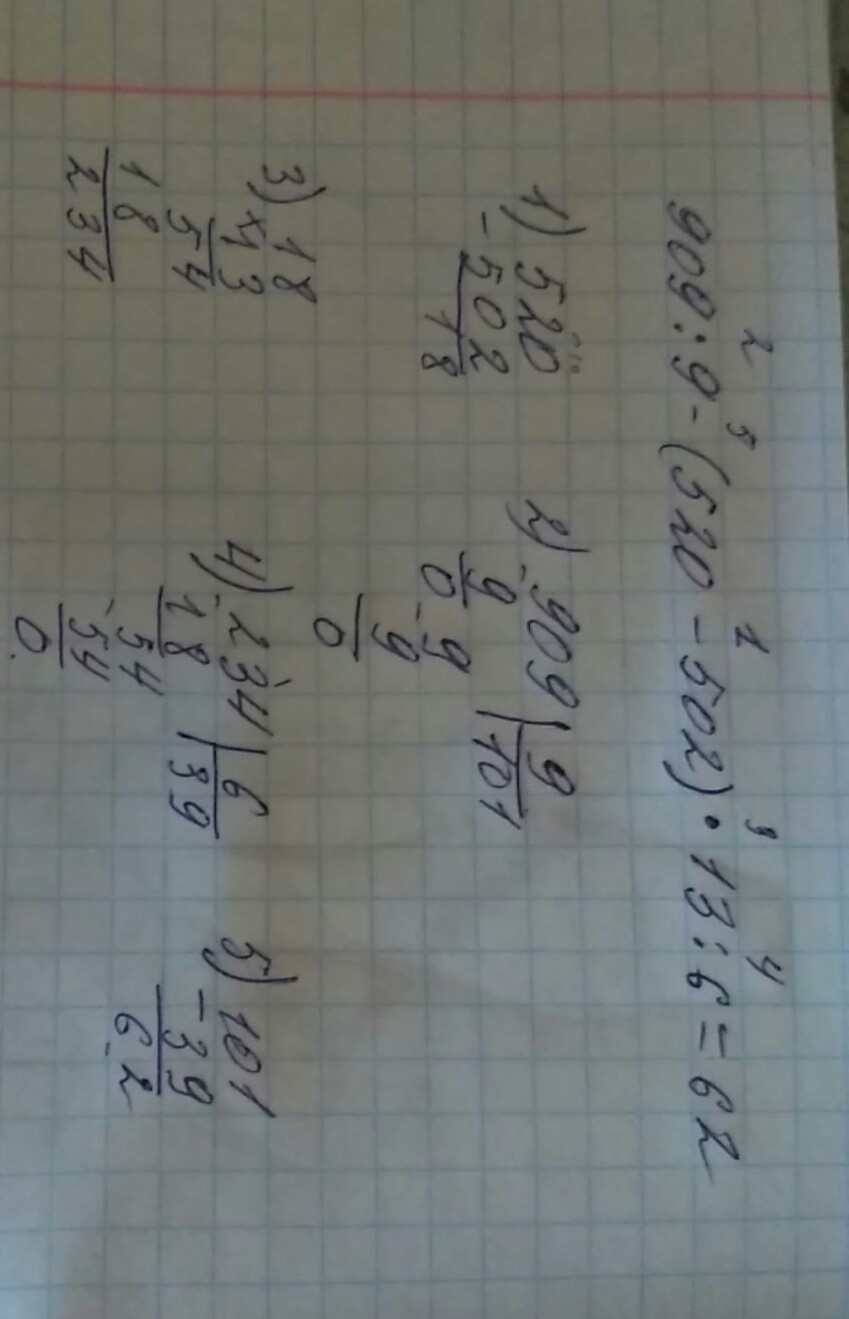 2 5 1 3 4
909 : 9 - (520 - 502) · 13 : 6 = 62
1) 520
- 502
18
2) 909 | 9
- 9 | 101
0 9
- 9
0
3) 18
× 13
54
18
234
4) 234 | 6
- 18 | 39
54
- 54
0
5) 101
- 39
62